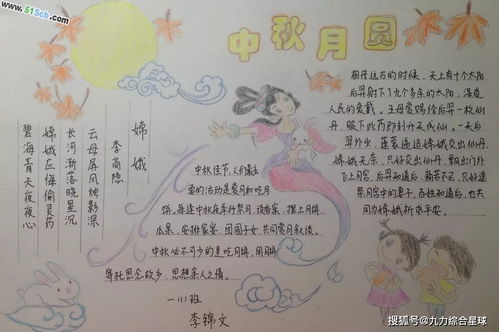 www.51Scb.com
中秋月圆
嫦娥
李商隐
云母屏风烛影深
长河渐落晓星沉
嫦娥应悔偷灵药
碧海青天夜夜心
中秋佳节，人们最主
要的活动是赏月和吃月
饼，每逢中秋夜举行祭月，设香案，摆上月饼
瓜果，安排家宴，团圆子女，共同赏月叙谈。
中秋必不可少的是吃月饼，团圆
寄托思念故乡，思想亲人之情。
一(1)班
李锦文
相传远古的时候，天上有十个太阳，
后羿射下了九个多余的太阳，深受
人民的爱戴，王母赏赐给后羿一枚仙
丹，服下此药即刻升天成仙。一天后
羿外出，蓬蒙逼迫嫦娥交出仙丹，
嫦娥无奈，只好交出仙丹，飘出门外
飞上月宫，后羿知道后，痛苦不已，只好遥
祭月宫中的妻子，百姓知道后，也共
同为嫦娥祈求平安。
搜狐号@九力综合星球